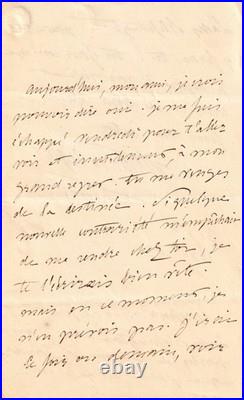 aujourd'hui, mon ami, je crois
pouvoir dire oui. je me suis
échappé vendredi pour t'aller
voir et inutilement, à mon
grand regret. tu me venges
de la destinée. si quelque
nouvelle contrariété m'empêchait
de me rendre chez toi, je
te l'écrirais bien vite.
mais en ce moment, je
n'en prévois pas. j'irai
ce soir ou demain, voir
© watercolorpainting.com